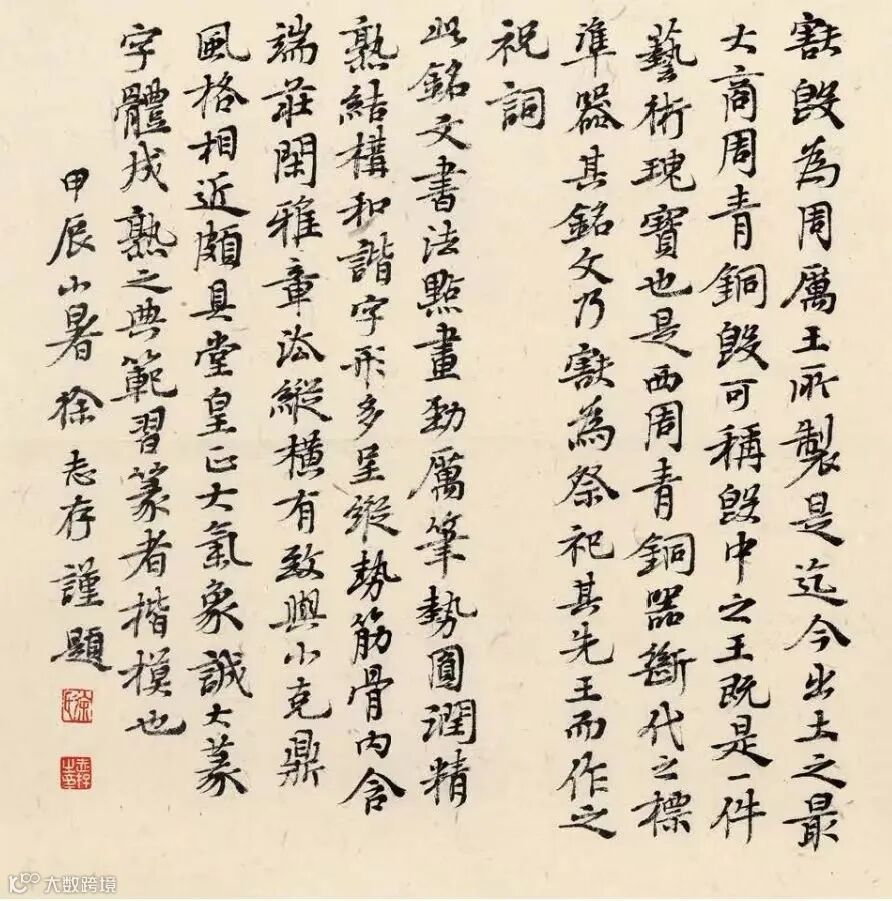 㝬𣪘為周厲王所製是迄今出土之最
大商周青銅𣪘可稱𣪘中之王既是一件
藝術瑰寶也是西周青銅器斷代之標
準器其銘文乃㝬為祭祀其先王而作之
祝詞
此銘文書法點畫勁厲筆勢圓潤精
熟結構和諧字形多呈縱勢筋骨内含
端莊閑雅章法縱橫有致與小克鼎
風格相近頗具堂皇正大氣象誠大篆
字體成熟之典範習篆者楷模也
甲辰小暑徐志存謹題
大数跨境